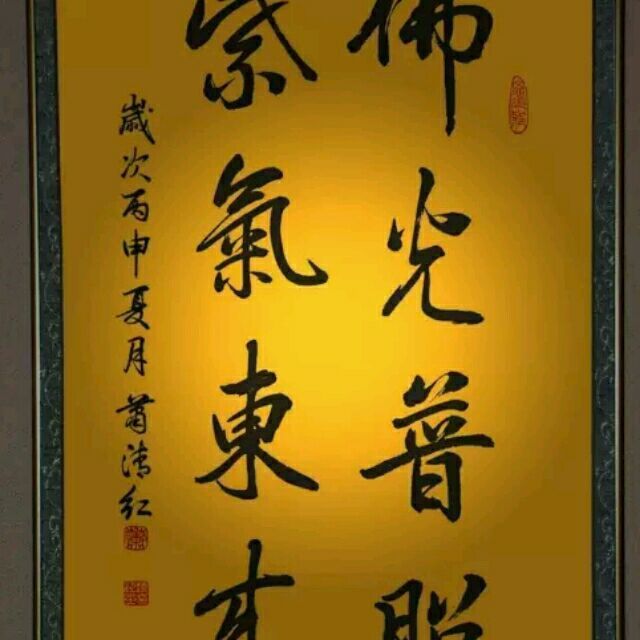 佛光普照
紫氣東來
歲次丙申夏月蕭清紅